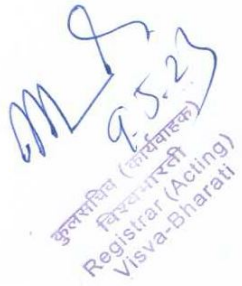 9.5.23
कुलसचिव (कार्यवाहक)
विश्वभारती
Registrar (Acting)
Visva-Bharati